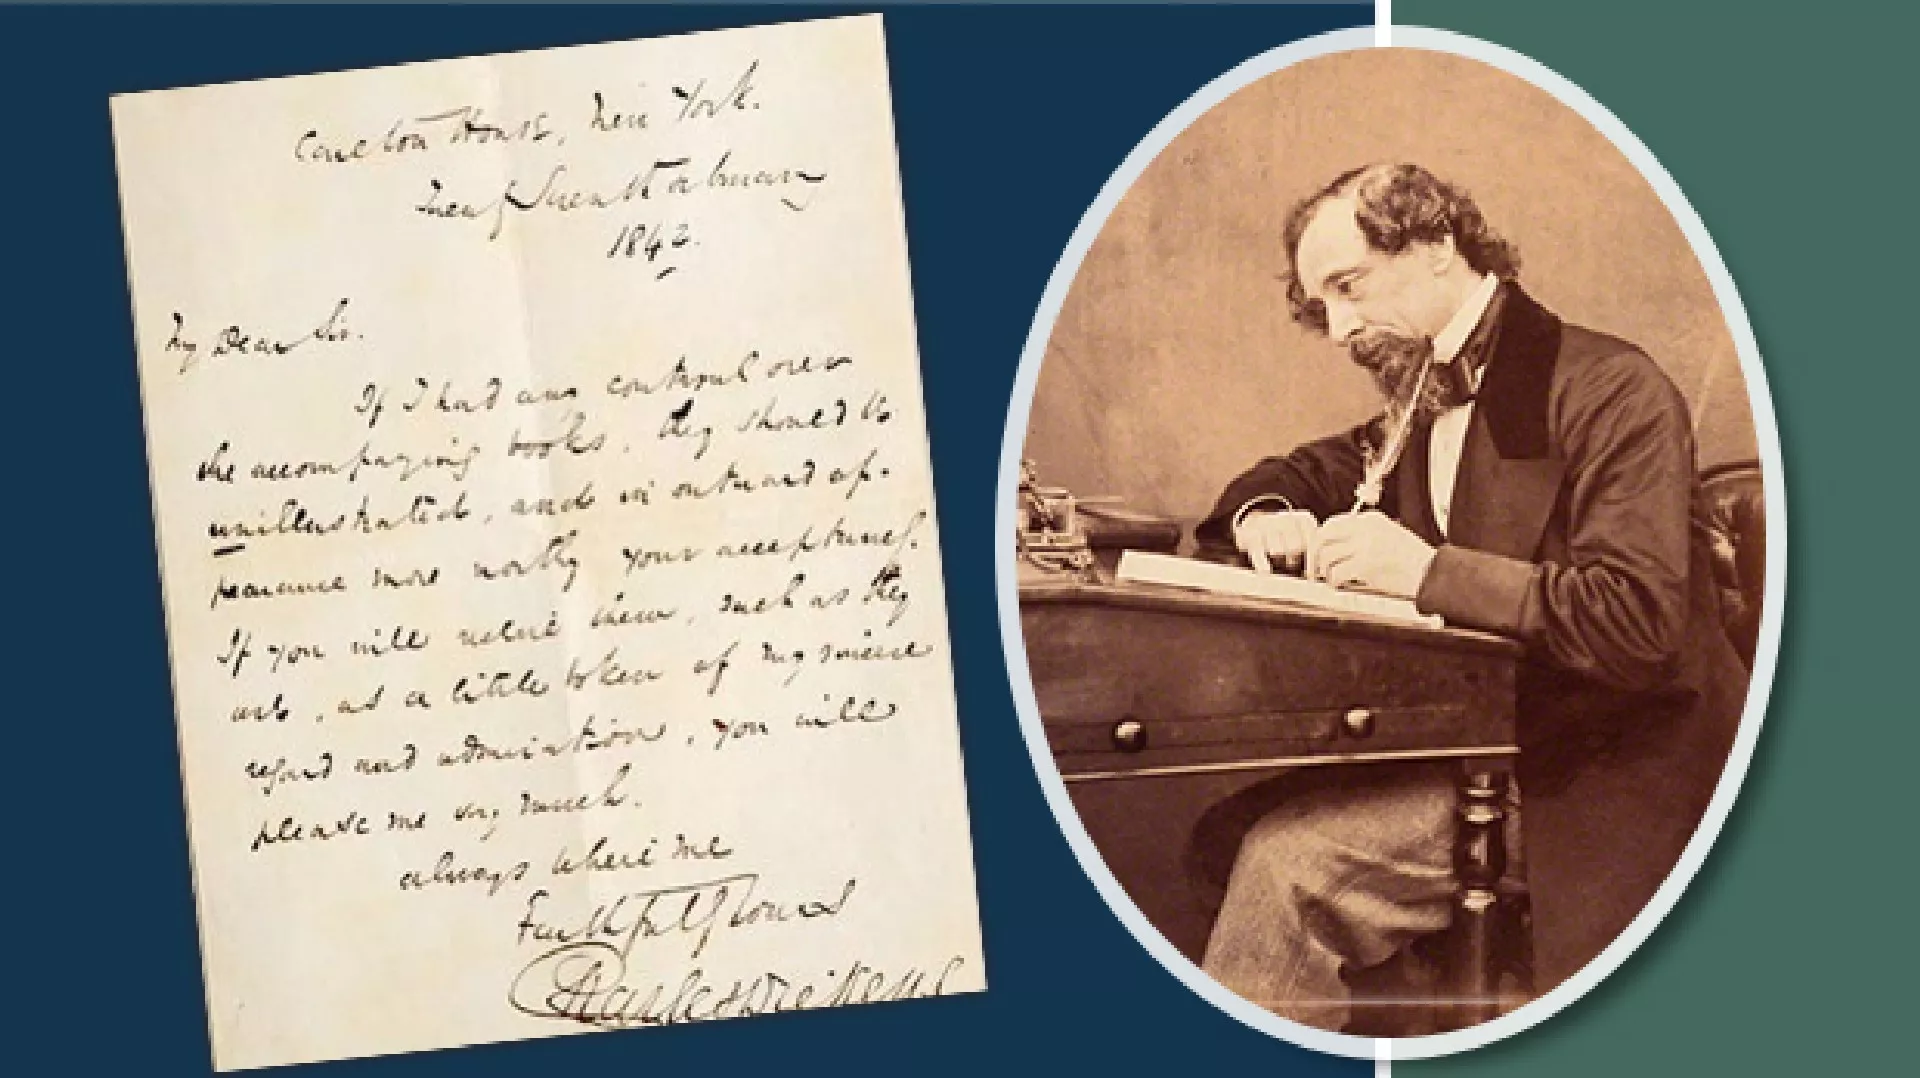 Carlton House, New York.
Twenty Seventh February
1842.
My Dear Sir.
If I had any controul over
the accompanying books, they should be
unillustrated, and in outward ap-
pearance more worthy your acceptance.
If you will receive them, such as they
are, as a little token of my sincere
regard and admiration, you will
please me very much.
always believe me
Faithfully Yours
Charles Dickens